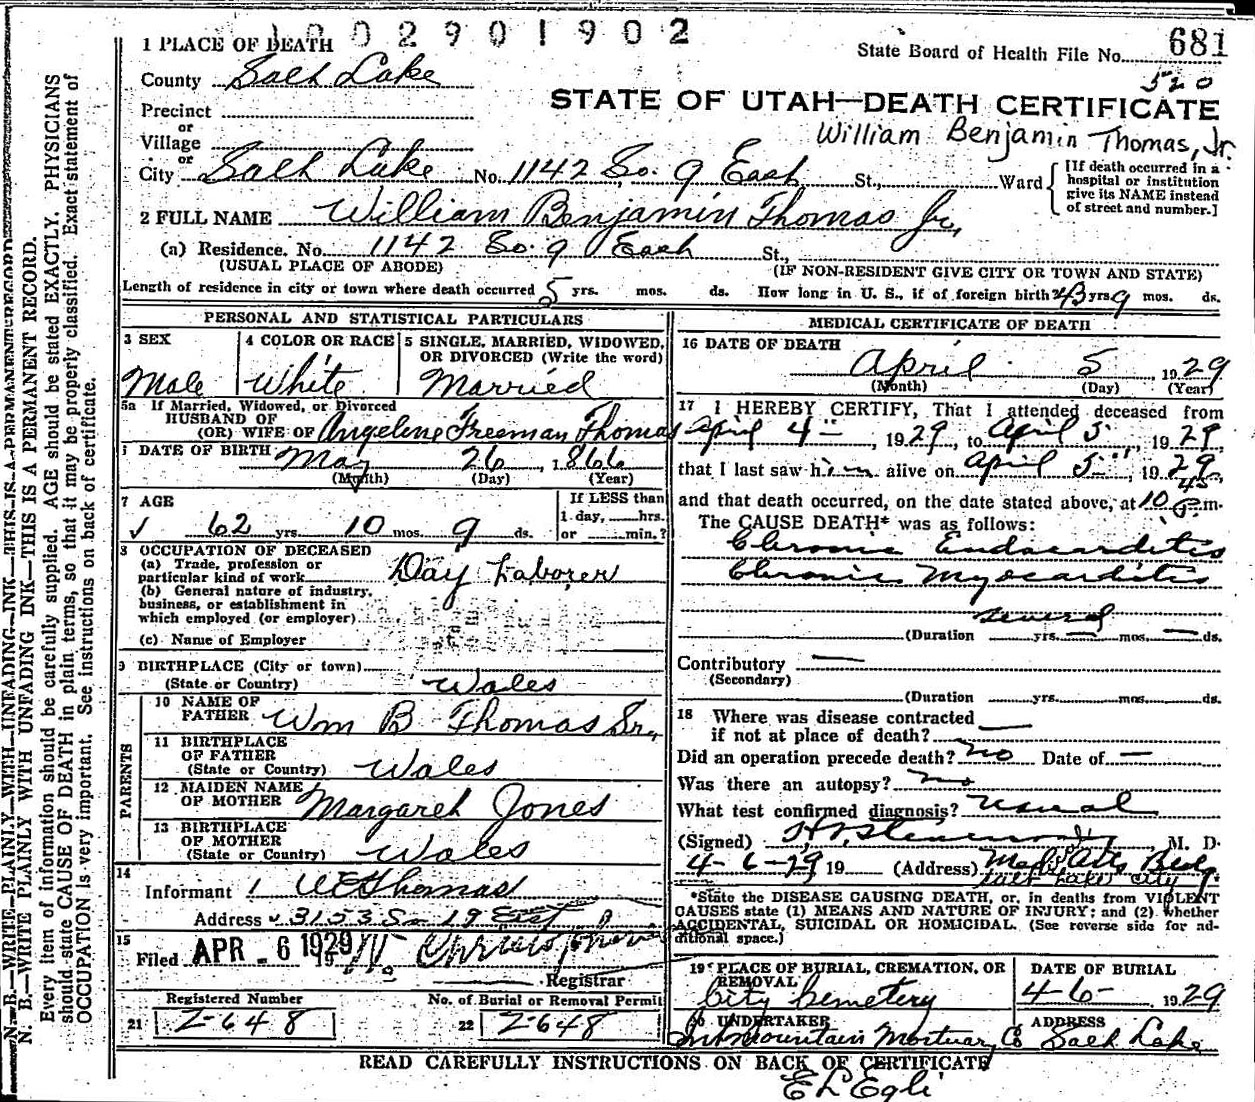 1 0 0 2 9 0 1 9 0 2
State Board of Health File No. 681
520
1 PLACE OF DEATH
County Salt Lake
STATE OF UTAH—DEATH CERTIFICATE
William Benjamin Thomas, Jr.
Precinct
or
Village
or
City Salt Lake No. 1142 So. 9 East St., Ward
[If death occurred in a hospital or institution give its NAME instead of street and number.]
2 FULL NAME William Benjamin Thomas Jr.
(a) Residence. No. 1142 So. 9 East St.,
(USUAL PLACE OF ABODE) (IF NON-RESIDENT GIVE CITY OR TOWN AND STATE)
Length of residence in city or town where death occurred 5 yrs. mos. ds. How long in U. S., if of foreign birth 43 yrs 9 mos. ds.
PERSONAL AND STATISTICAL PARTICULARS
3 SEX
Male
4 COLOR OR RACE
White
5 SINGLE, MARRIED, WIDOWED,
OR DIVORCED (Write the word)
Married
5a If Married, Widowed, or Divorced
HUSBAND OF
(OR) WIFE OF Angeline Freeman Thomas
DATE OF BIRTH May 26, 1866
(Month) (Day) (Year)
7 AGE
62 yrs. 10 mos. 9 ds.
If LESS than
1 day, hrs.
or min.?
8 OCCUPATION OF DECEASED
(a) Trade, profession or
particular kind of work Day Laborer
(b) General nature of industry,
business, or establishment in
which employed (or employer)
(c) Name of Employer
9 BIRTHPLACE (City or town)
(State or Country) Wales
PARENTS
10 NAME OF
FATHER Wm B Thomas Sr.
11 BIRTHPLACE
OF FATHER
(State or Country) Wales
12 MAIDEN NAME
OF MOTHER Margaret Jones
13 BIRTHPLACE
OF MOTHER
(State or Country) Wales
14
Informant W E Thomas
Address 3153 So 19 East
15
Filed APR 6 1929
Registrar
Registered Number
21 2-648
No. of Burial or Removal Permit
22 2-648
MEDICAL CERTIFICATE OF DEATH
16 DATE OF DEATH
April 5, 1929
(Month) (Day) (Year)
17 I HEREBY CERTIFY, That I attended deceased from
April 4, 1929, to April 5, 1929
that I last saw him alive on April 5, 1929
and that death occurred, on the date stated above, at 10 45 P.m.
The CAUSE DEATH* was as follows:
Chronic Endocarditis
Chronic Myocarditis
several
(Duration yrs. — mos. — ds.
Contributory —
(Secondary)
(Duration yrs. mos. ds.
18 Where was disease contracted
if not at place of death? —
Did an operation precede death? no Date of —
Was there an autopsy? no
What test confirmed diagnosis? usual
(Signed) M. D.
4-6-29 19 (Address) Med. Arts Bldg.
Salt Lake City
*State the DISEASE CAUSING DEATH, or, in deaths from VIOLENT
CAUSES state (1) MEANS AND NATURE OF INJURY; and (2) whether
ACCIDENTAL, SUICIDAL OR HOMICIDAL. (See reverse side for ad-
ditional space.)
19 PLACE OF BURIAL, CREMATION, OR
REMOVAL
City Cemetery
DATE OF BURIAL
4-6-, 1929
20 UNDERTAKER
Intermountain Mortuary Co
ADDRESS
Salt Lake
READ CAREFULLY INSTRUCTIONS ON BACK OF CERTIFICATE
E L Egli
N. B.—WRITE PLAINLY WITH UNFADING INK—THIS IS A PERMANENT RECORD
N. B.—WRITE PLAINLY WITH UNFADING INK—THIS IS A PERMANENT RECORD.
Every item of information should be carefully supplied. AGE should be stated EXACTLY. PHYSICIANS
should state CAUSE OF DEATH in plain terms, so that it may be properly classified. Exact statement of
OCCUPATION is very important. See instructions on back of certificate.